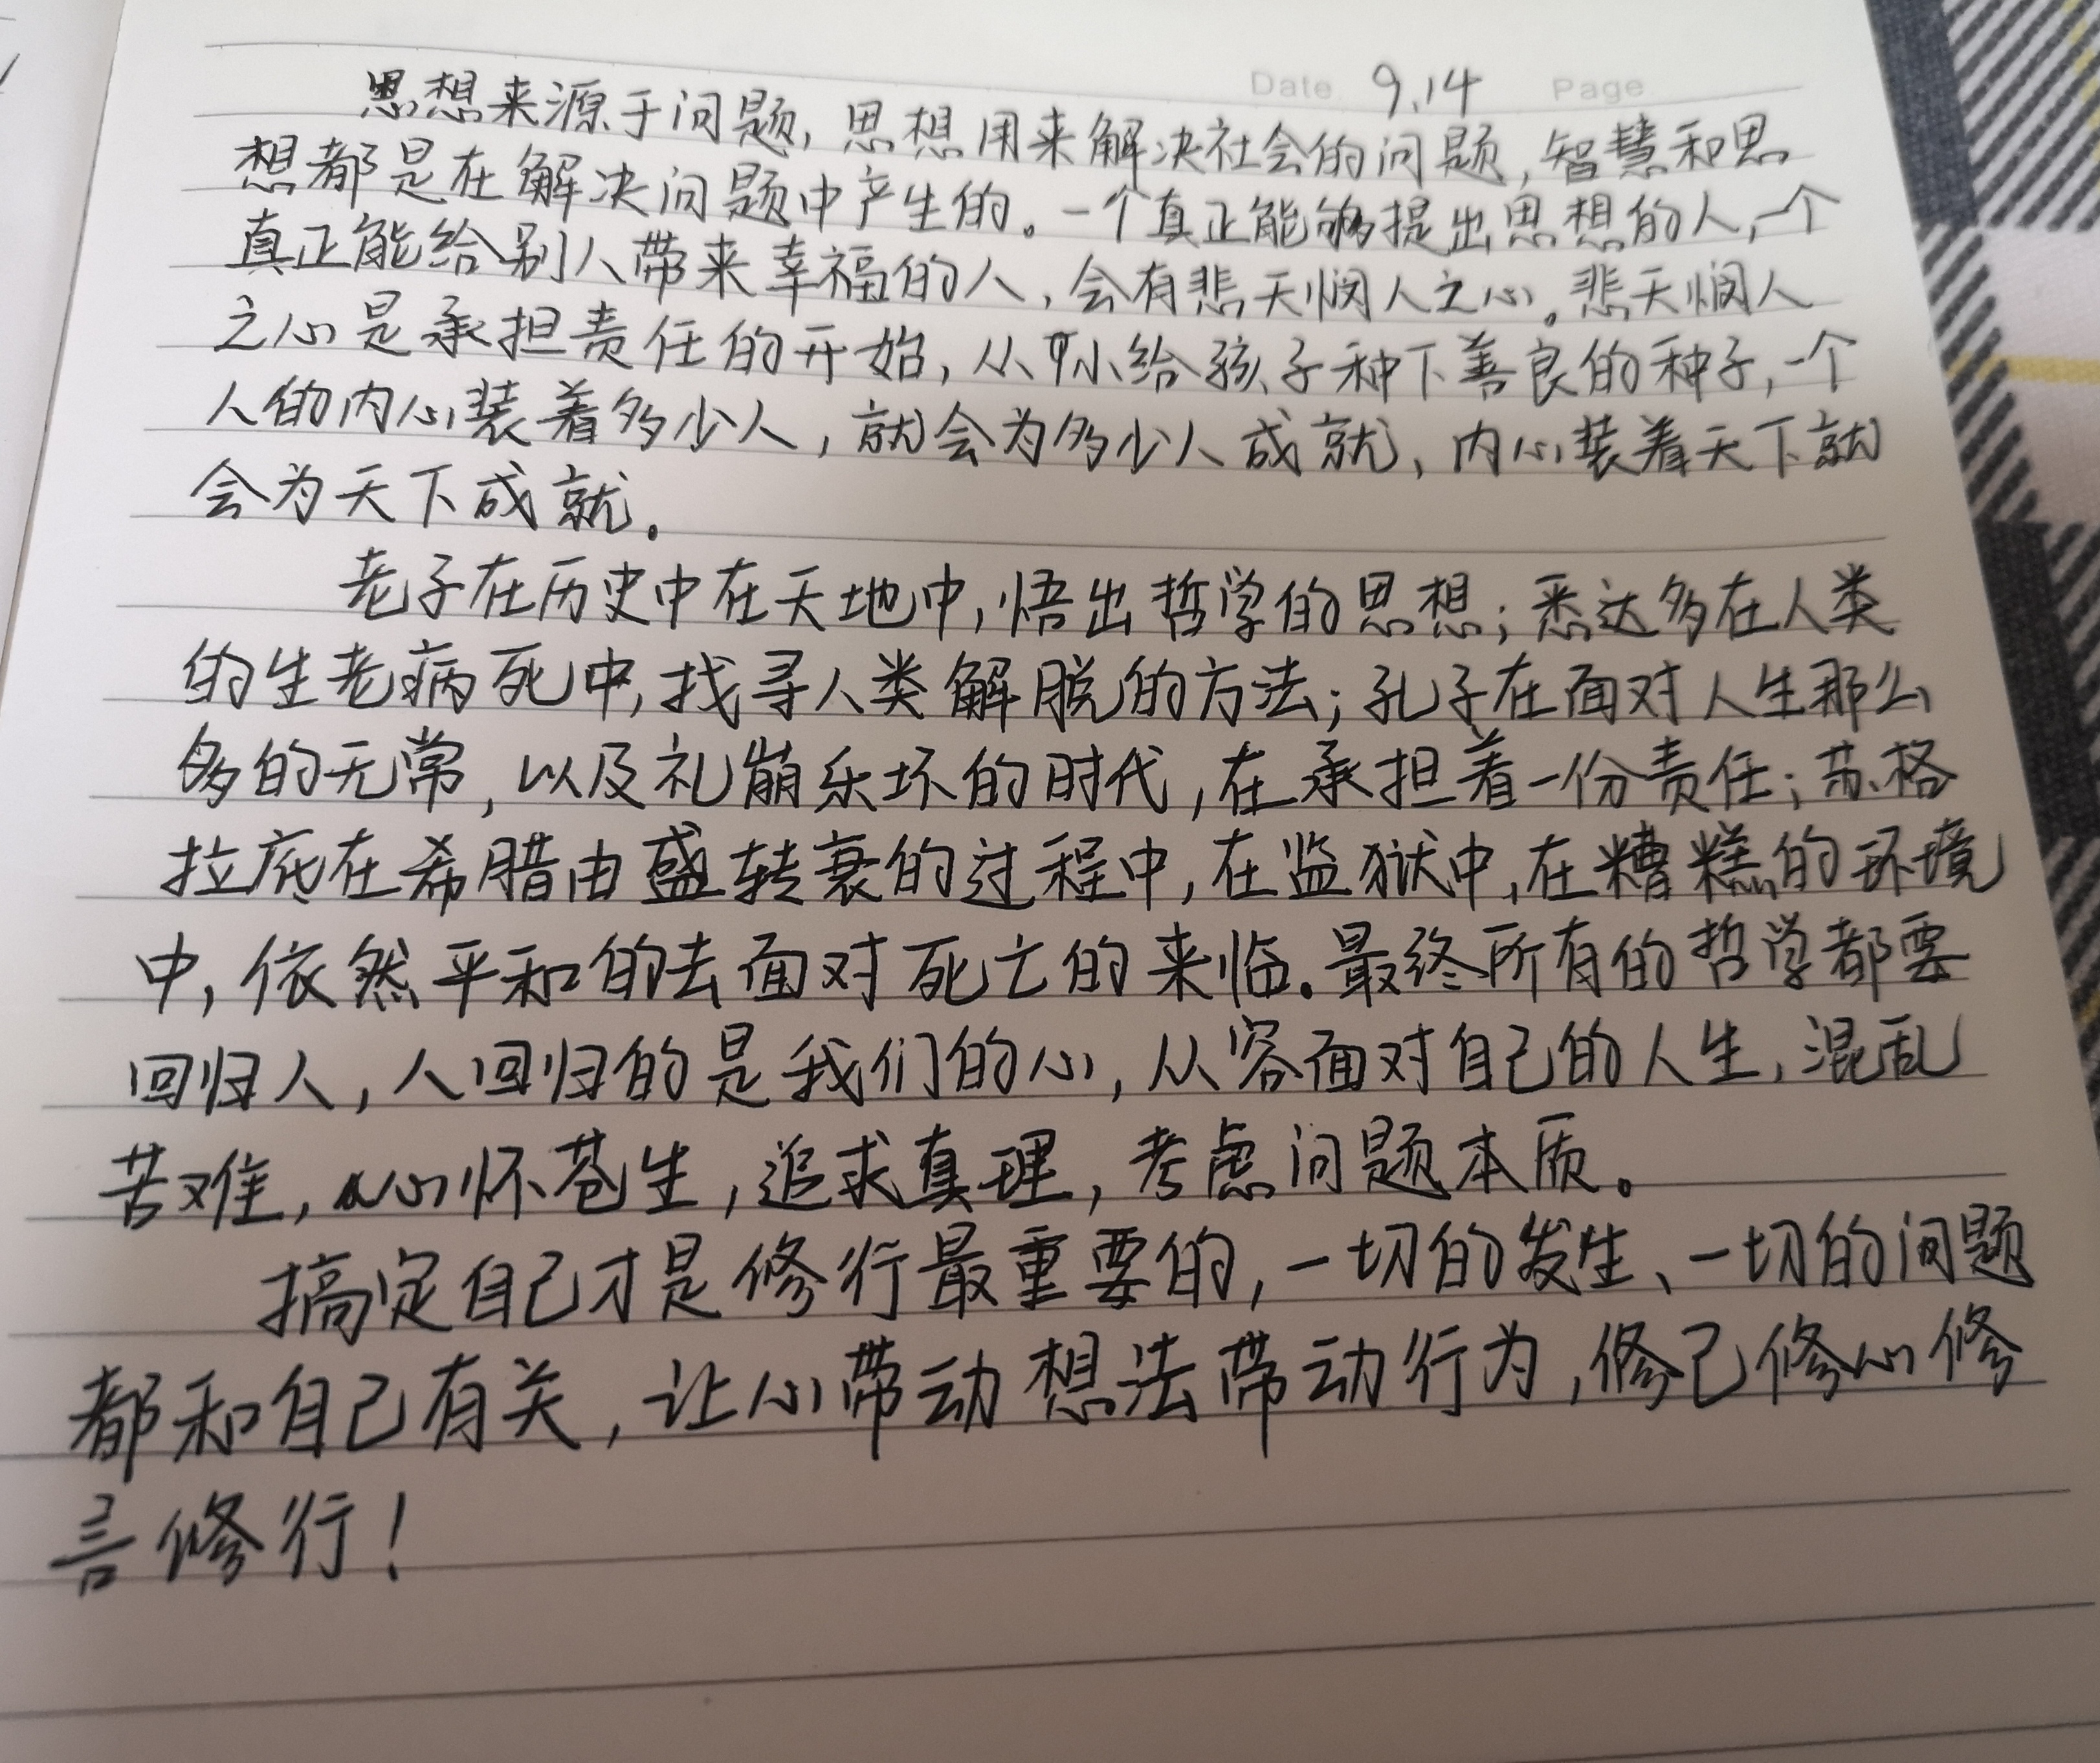 Date 9.14 Page
思想来源于问题，思想用来解决社会的问题，智慧和思
想都是在解决问题中产生的。一个真正能够提出思想的人，一个
真正能给别人带来幸福的人，会有悲天悯人之心。悲天悯人
之心是承担责任的开始，从小给孩子种下善良的种子，一个
人的内心装着多少人，就会为多少人成就，内心装着天下就
会为天下成就。
老子在历史中在天地中，悟出哲学的思想；悉达多在人类
的生老病死中，找寻人类解脱的方法；孔子在面对人生那么
多的无常，以及礼崩乐坏的时代，在承担着一份责任；苏格
拉底在希腊由盛转衰的过程中，在监狱中，在糟糕的环境
中，依然平和的去面对死亡的来临。最终所有的哲学都要
回归人，人回归的是我们的心，从容面对自己的人生，混乱
苦难，心怀苍生，追求真理，考虑问题本质。
搞定自己才是修行最重要的，一切的发生、一切的问题
都和自己有关，让心带动想法带动行为，修己修心修
言修行！